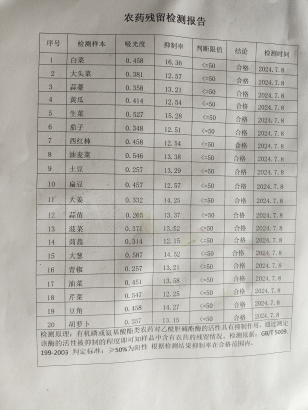 农药残留检测报告
序号 检测样本 吸光度 抑制率 判断限值 结论 检测时间
1 白菜 0.458 16.36 <=50 合格 2024.7.8
2 大头菜 0.381 12.57 <=50 合格 2024.7.8
3 蒜薹 0.358 13.21 <=50 合格 2024.7.8
4 黄瓜 0.414 12.54 <=50 合格 2024.7.8
5 生菜 0.527 15.28 <=50 合格 2024.7.8
6 茄子 0.348 12.51 <=50 合格 2024.7.8
7 西红柿 0.458 12.54 <=50 合格 2024.7.8
8 油麦菜 0.546 13.38 <=50 合格 2024.7.8
9 土豆 0.257 13.29 <=50 合格 2024.7.8
10 扁豆 0.457 12.57 <=50 合格 2024.7.8
11 大姜 0.332 14.25 <=50 合格 2024.7.8
12 蒜苗 0.265 13.37 <=50 合格 2024.7.8
13 菠菜 13.52 <=50 合格 2024.7.8
14 茼蒿 0.314 12.15 <=50 合格 2024.7.8
15 大葱 0.587 14.52 <=50 合格 2024.7.8
16 青椒 0.257 13.21 <=50 合格 2024.7.8
17 油菜 0.451 13.58 <=50 合格 2024.7.8
18 芹菜 0.547 12.25 <=50 合格 2024.7.8
19 豆角 0.458 14.27 <=50 合格 2024.7.8
20 胡萝卜 0.357 13.15 <=50 合格 2024.7.8
检测原理：有机磷或氨基酸酯类农药对乙酰胆碱酯酶的活性具有抑制作用，通过测定
该酶的活性被抑制的程度即可知样品中含有农药的残留情况。检测依据：GB/T 5009.
199-2003 判定标准：≥50%为阳性 根据检测结果抑制率在合格范围内。